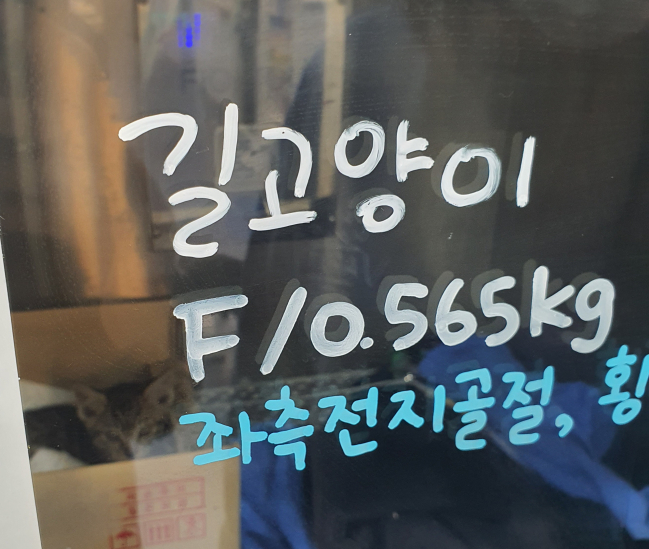 길고양이
F/0.565kg
좌측전지골절, 횡